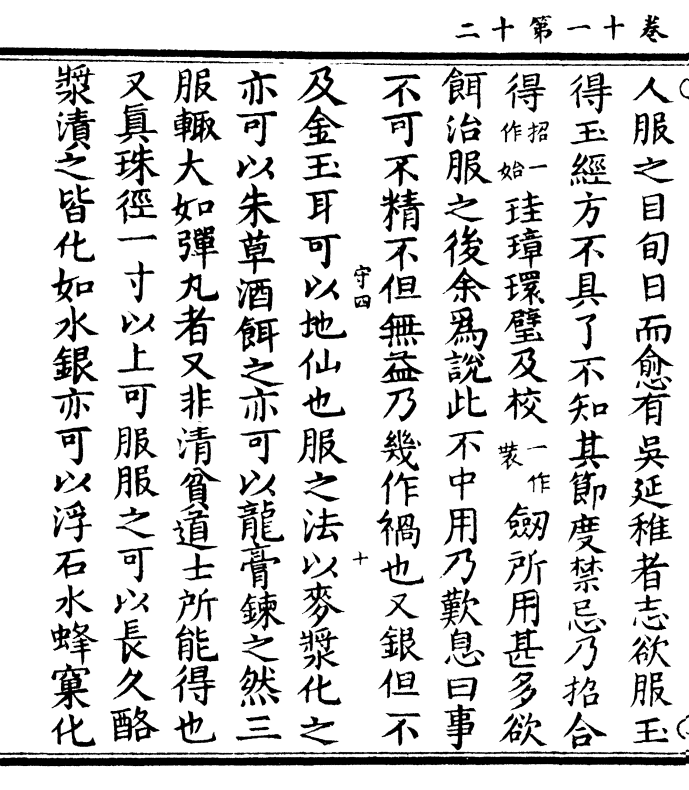 卷十一第十二
人服之目旬日而愈有吳延稚者志欲服玉
得玉經方不具了不知其節度禁忌乃招合
得招一作始珪璋環璧及校一作裝劒所用甚多欲
餌治服之後余爲說此不中用乃歎息曰事
不可不精不但無益乃幾作禍也又銀但不
及金玉耳可以地仙也服之法以麥漿化之
守四
十
亦可以朱草酒餌之亦可以龍膏鍊之然三
服輙大如彈丸者又非清貧道士所能得也
又眞珠徑一寸以上可服服之可以長久酪
漿漬之皆化如水銀亦可以浮石水蜂窠化